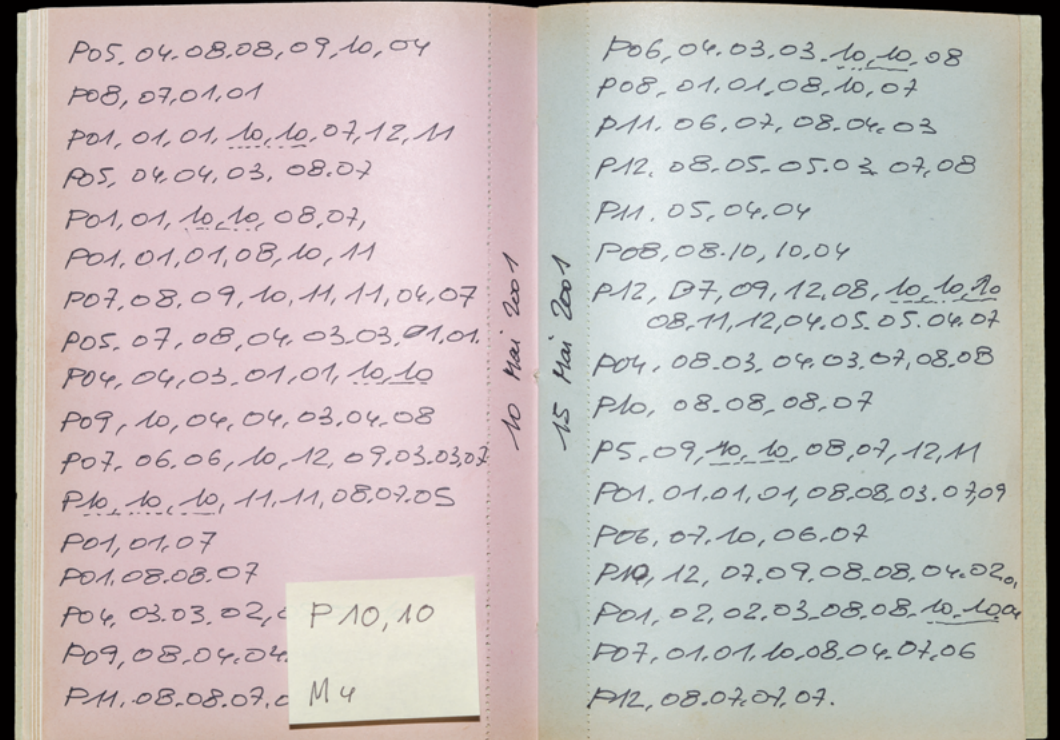 P05, 04.08.08,09,10,04
P08, 07,01.01
P01, 01, 01, 10,10,07,12,11
P05, 04.04,03, 08.07
P01, 01, 10,10, 08.07,
P01, 01, 01, 08, 10, 11
P07, 08, 09, 10, 11, 11, 04, 07
P05. 07, 08, 04. 03.03.01,01.
P04, 04,03.01,01,10,10
P09, 10, 04, 04, 03,04,08
P07. 06.06, 10,12, 09.03.03,07
P10, 10, 10, 11.11, 08.07.05
P01,01,07
P01.08.08.07
P04, 03.03.02,
P09, 08.04.04.
P11.08.08.07,
P 10,10
M 4
10 Mai 2001
15 Mai 2001
P06, 04.03.03.10,10,08
P08, 01,01,08,10,07
P11. 06,07, 08.04.03
P12. 08.05.05.03.07,08
P11. 05, 04.04
P08, 08.10, 10,04
P12, 07,09,12,08,10,10,10
08.11,12,04.05.05.04.07
P04, 08.03, 04.03.07,08.08
P10, 08.08, 08.07
P5, 09, 10, 10, 08,07,12,11
P01. 01.01, 01, 08.08.03.07,09
P06, 07.10, 06.07
P10, 12, 07.09.08.08.04.02
P01, 02, 02.03.08.08.10.10
P07.01.01.10.08.04.07.06
P12, 08.07.07.07.